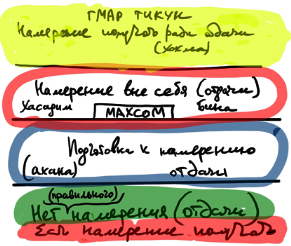 ГМАР ТИКУН
Намерение получать ради отдачи
(хохма)
Намерение вне себя (отдачи)
Хасадим МАХСОМ Бина
Подготовка к намерению
(ахана) отдачи
(правильного)
Нет намерения (отдачи)
Есть намерение получать